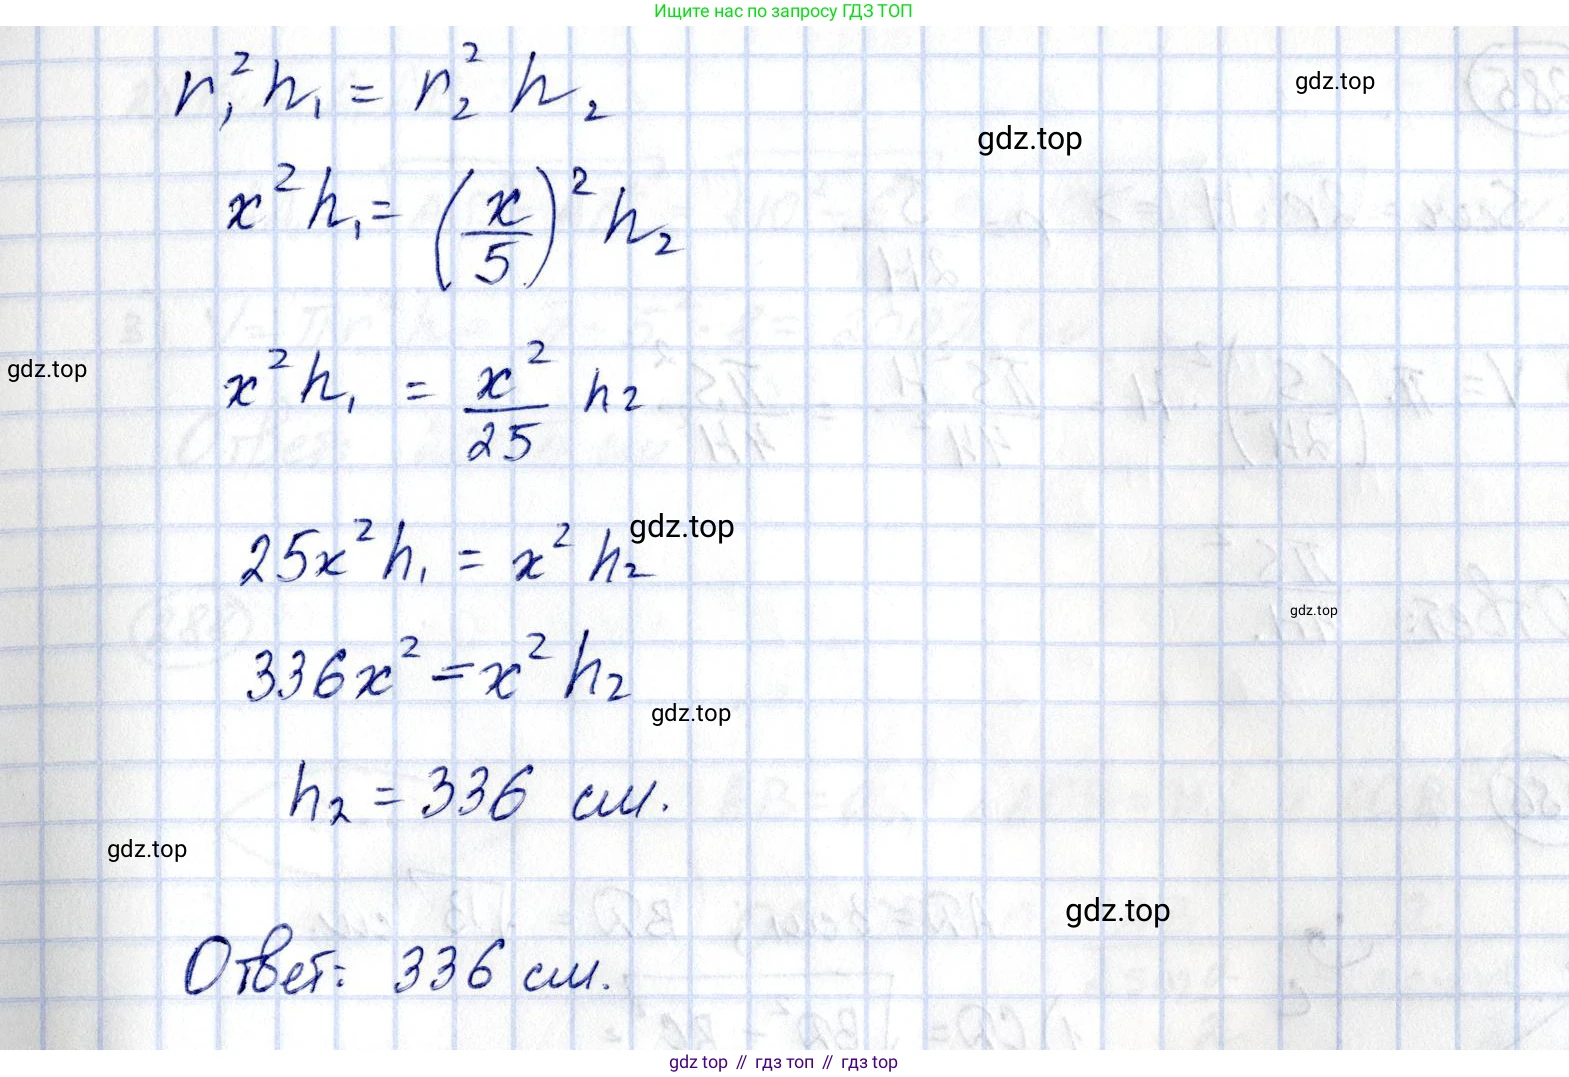 Ищите нас по запросу ГДЗ ТОП
r₁² h₁ = r₂² h₂
gdz.top
gdz.top
x² h₁ = (x/5)² h₂
gdz.top
x² h₁ = x²/25 h₂
25x² h₁ = x² h₂
gdz.top
gdz.top
336x² = x² h₂
gdz.top
h₂ = 336 см.
gdz.top
gdz.top
Ответ: 336 см.
gdz top // гдз топ // gdz top